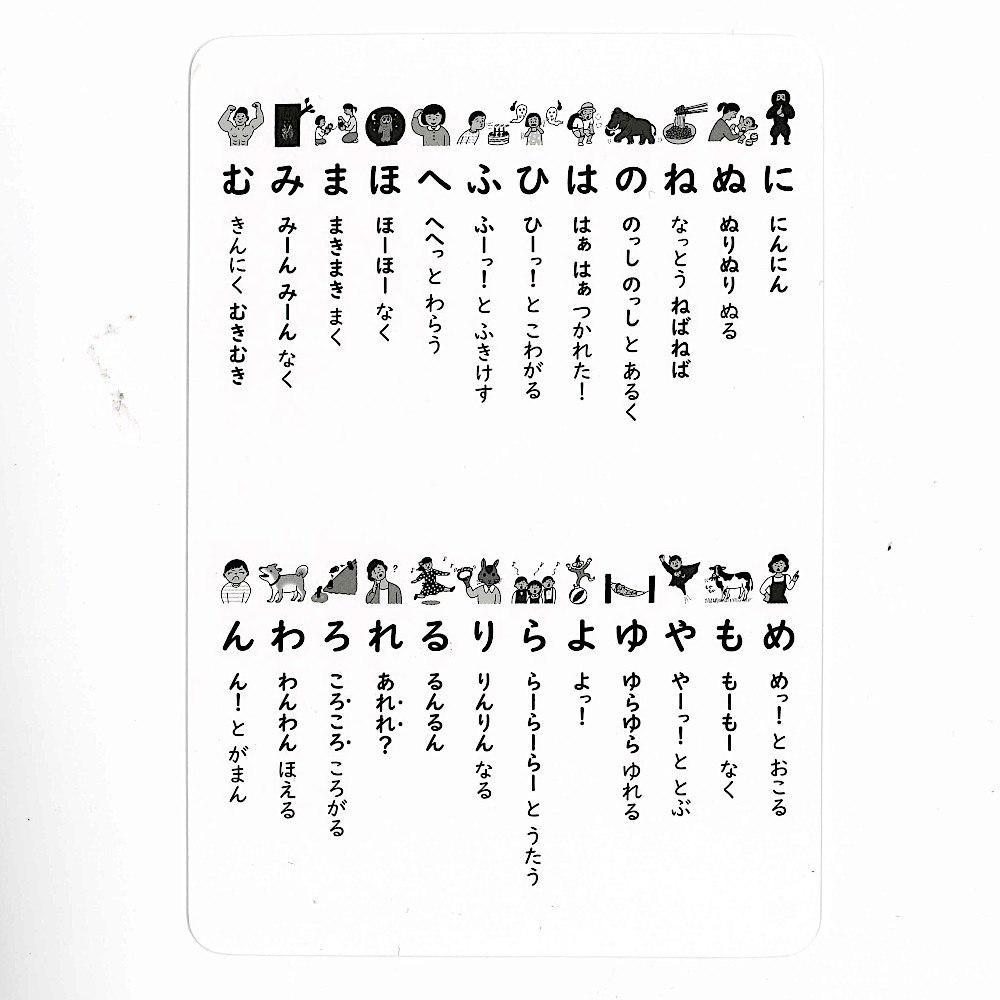 に にんにん
ぬ ぬりぬり ぬる
ね なっとう ねばねば
の のっし のっし と あるく
は はぁ はぁ つかれた！
ひ ひーっ！ と こわがる
ふ ふーっ！ と ふきけす
へ へへっ と わらう
ほ ほーほー なく
ま まきまき まく
み みーん みーん なく
む きんにく むきむき
め めっ！ と おこる
も もーもー なく
や やーっ！ と とぶ
ゆ ゆらゆら ゆれる
よ よっ！
ら らーらーらー と うたう
り りんりん なる
る るんるん
れ あれれ？
ろ ころころ ころがる
わ わんわん ほえる
ん ん！ と がまん